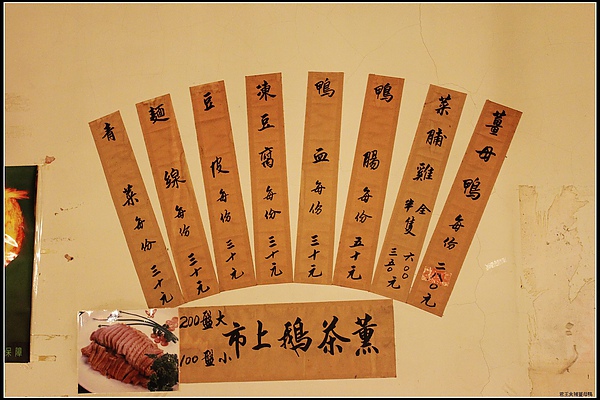 薑母鴨每份二八〇元
菜脯雞全隻六〇〇
半隻三五〇元
鴨腸每份五十元
鴨血每份三十元
凍豆腐每份三十元
豆皮每份三十元
麵線每份三十元
青菜每份三十元
薰茶鵝上市
大盤200
小盤100
保障